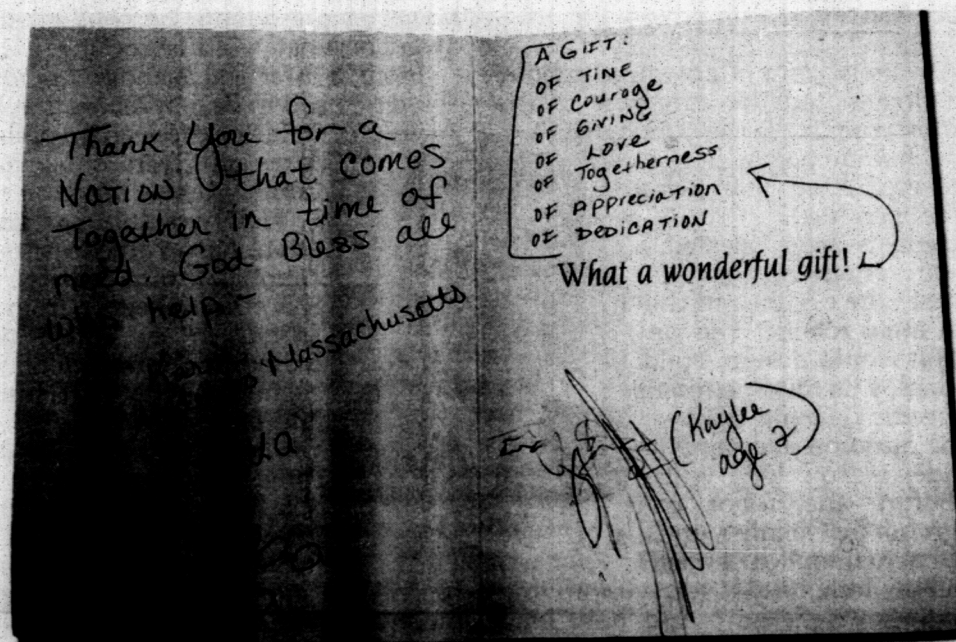 Thank You for a
Nation that comes
Together in time of
need. God Bless all
who help-
Massachusetts
A GIFT:
OF TINE
OF Courage
OF GIVING
OF LOVE
OF Togetherness
OF Appreciation
OF DEDICATION
What a wonderful gift!
(Kaylee
age 2)